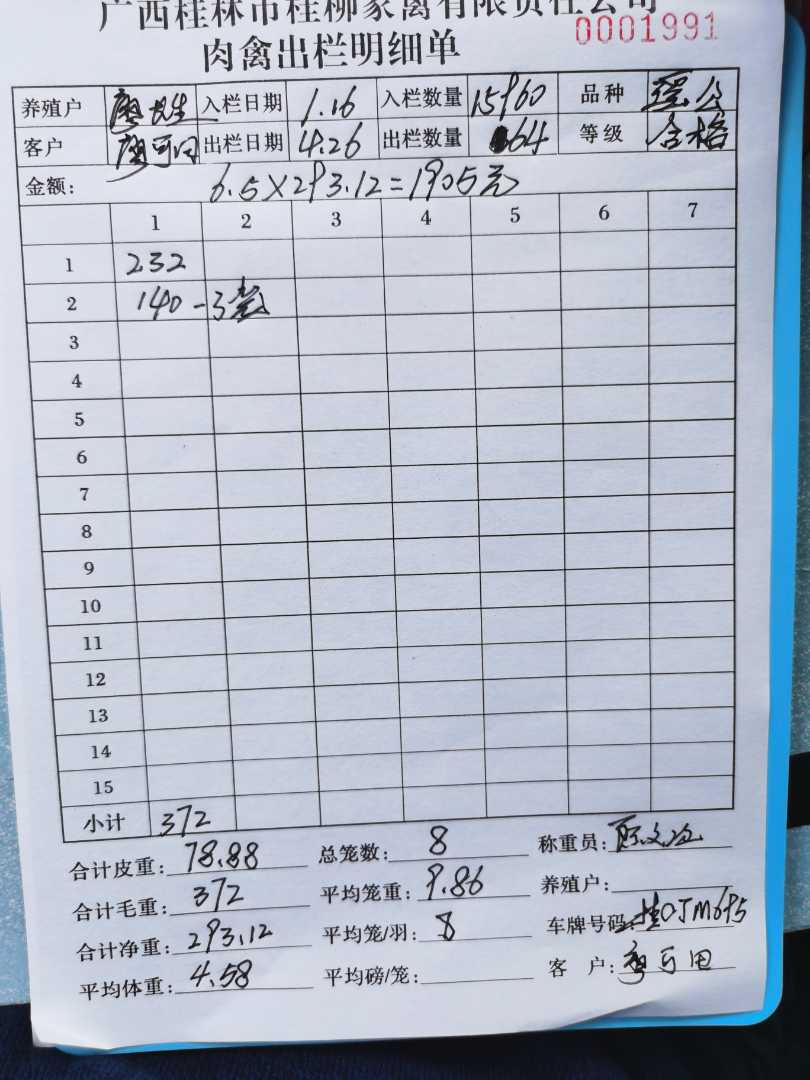 广西桂林市桂柳家禽有限责任公司
肉禽出栏明细单 0001991
养殖户 廖 入栏日期 1.16 入栏数量 15960 品种 瑶公
客户 廖可田 出栏日期 4.26 出栏数量 64 等级 合格
金额: 6.5×293.12=1905元
1 2 3 4 5 6 7
1 232
2 140-3
3
4
5
6
7
8
9
10
11
12
13
14
15
小计 372
合计皮重: 78.88 总笼数: 8 称重员:
合计毛重: 372 平均笼重: 9.86 养殖户:
合计净重: 293.12 平均笼/羽: 8 车牌号码: 桂OJM695
平均体重: 4.58 平均磅/笼: 客 户: 廖可田